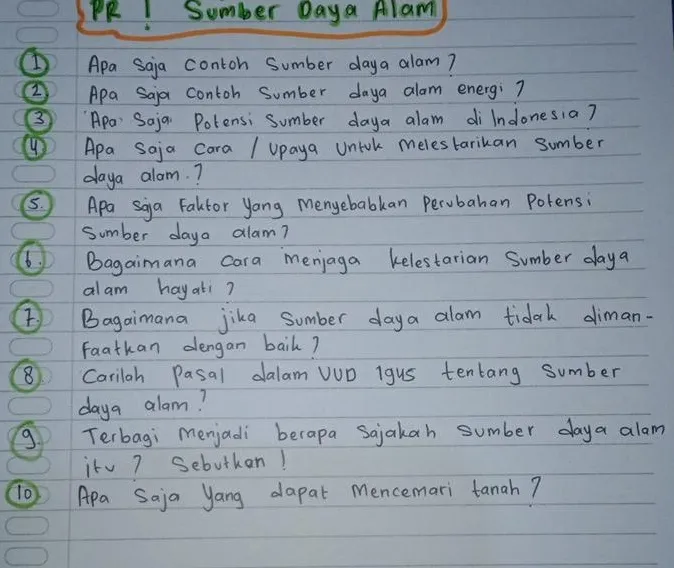 PR ! Sumber Daya Alam
1 Apa Saja Contoh Sumber daya alam ?
2 Apa Saja Contoh Sumber daya alam energi ?
3 Apa Saja Potensi Sumber daya alam di Indonesia ?
4 Apa Saja Cara / Upaya Untuk Melestarikan Sumber
daya alam. ?
5. Apa Saja Faktor Yang Menyebabkan Perubahan Potensi
Sumber daya alam ?
6. Bagaimana Cara Menjaga kelestarian Sumber daya
alam hayati ?
7. Bagaimana jika Sumber daya alam tidak diman-
faatkan dengan baik ?
8 Carilah Pasal dalam UUD 1945 tentang Sumber
daya alam ?
9 Terbagi Menjadi berapa Sajakah Sumber daya alam
itu ? Sebutkan !
10 Apa Saja Yang dapat Mencemari tanah ?